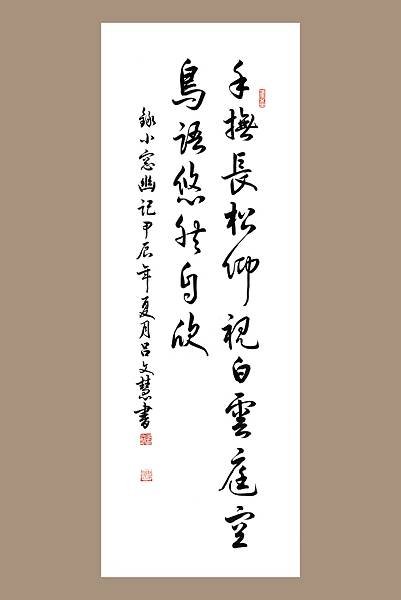 手撫長松仰視白雲庭空
鳥語悠然自欣
錄小窓幽記甲辰年夏月呂文慧書